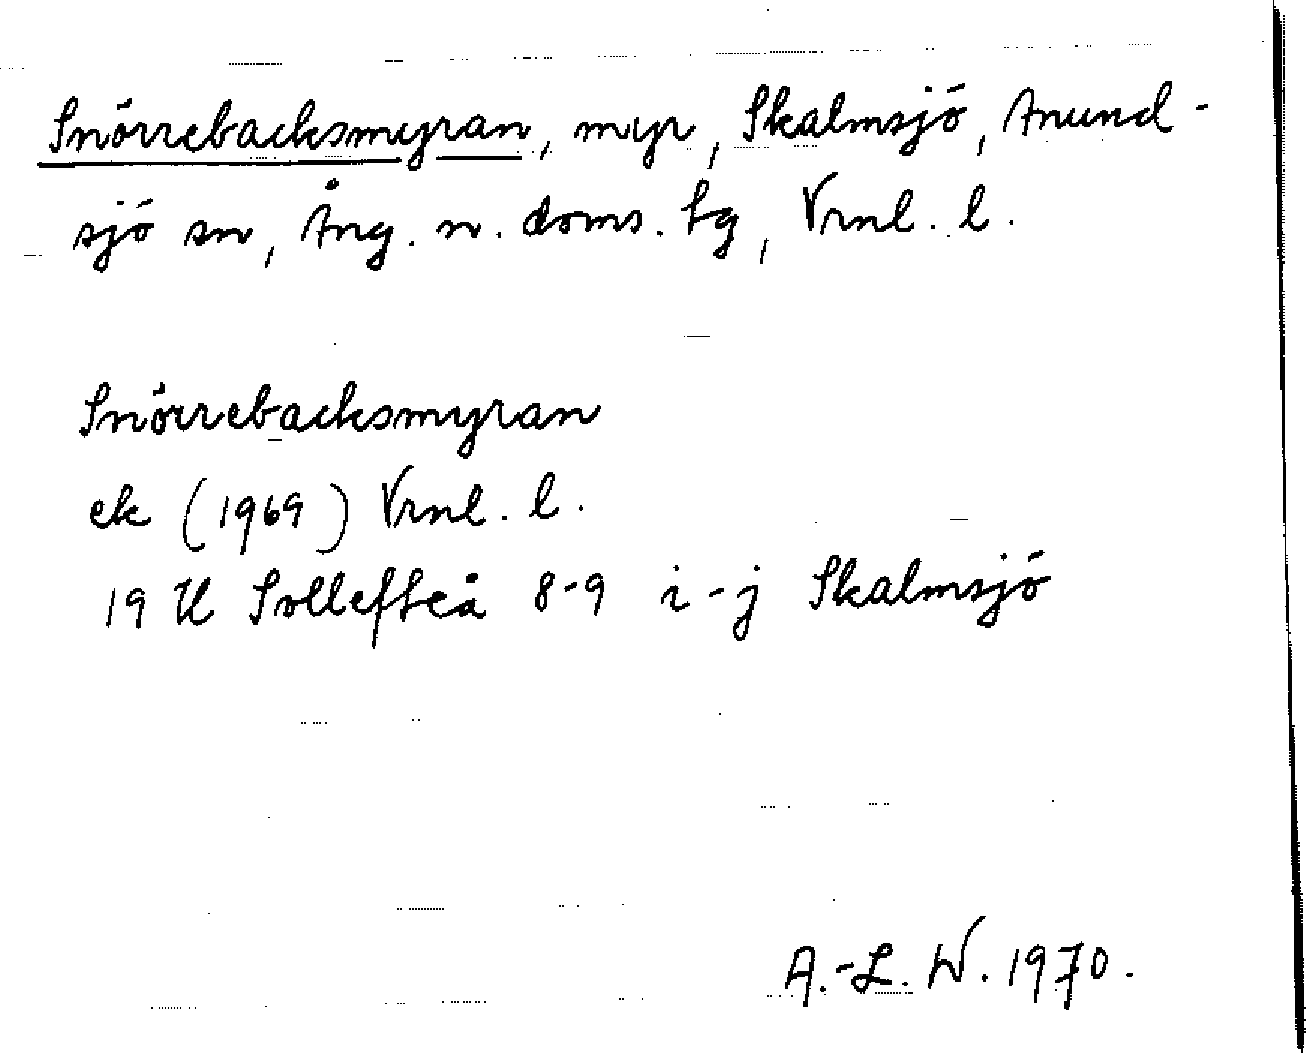 Snörrebacksmyran, myr, Skalmsjö, Anund-
sjö sn, Ång. n. doms. tg, Vrnl. l.
Snörrebacksmyran
ek (1969) Vrnl. l.
19 H Sollefteå 8-9 i-j Skalmsjö
A.-L. W. 1970.